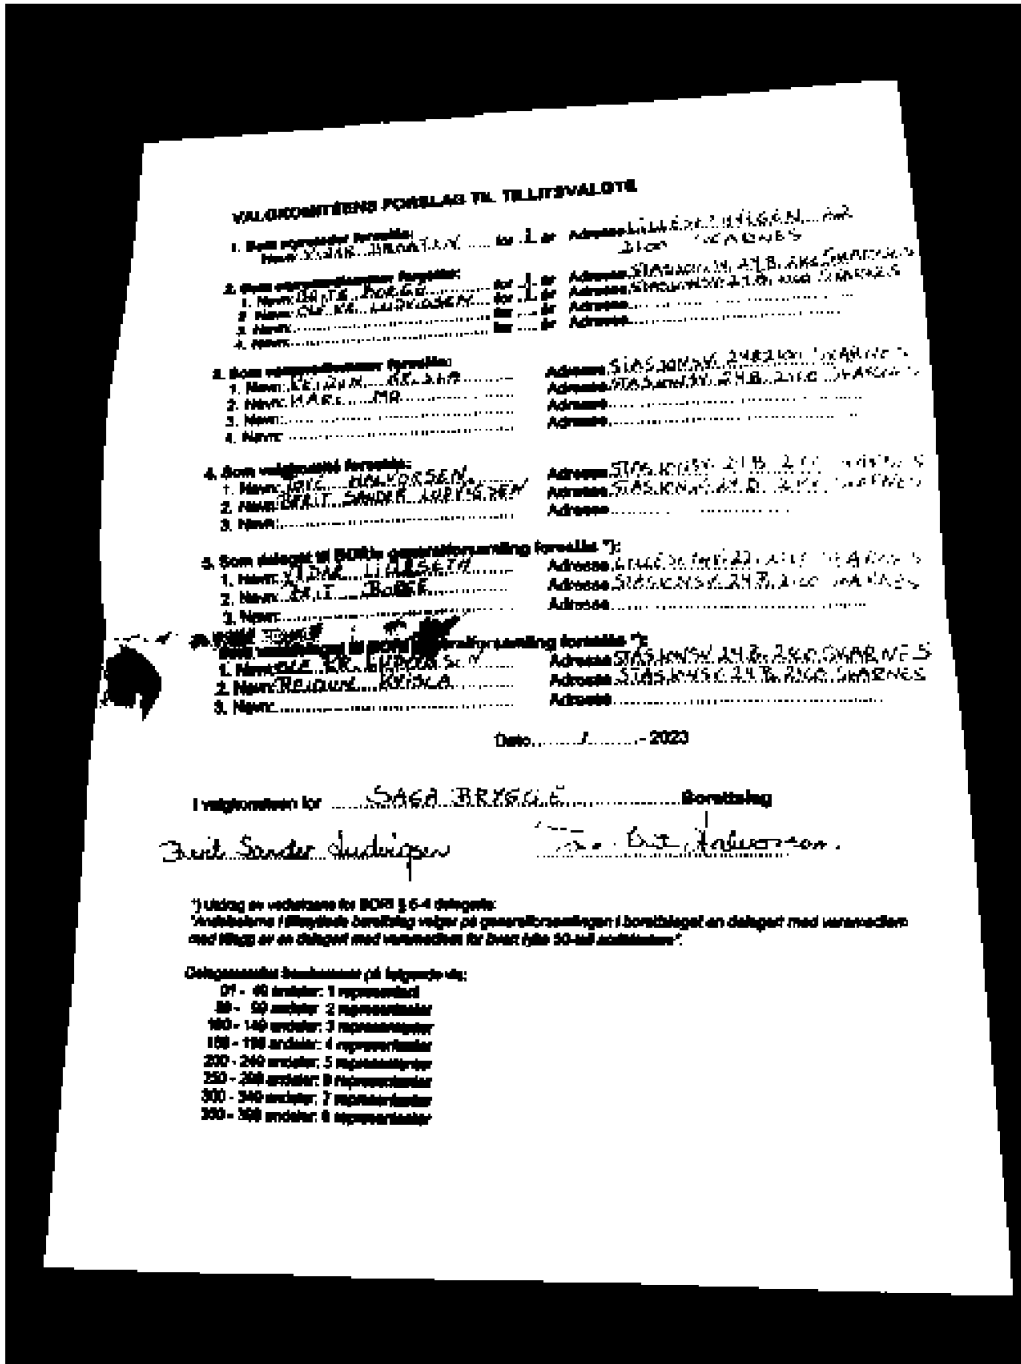 VALGKOMITEENS FORSLAG TIL TILLITSVALGTE
1. Som styreleder foreslås:
Navn: for 1 år Adresse
2100 SKARNES
2. Som styremedlemmer foreslås:
1. Navn: for 1 år Adresse STASJONSV. 24B. 2100 SKARNES
2. Navn: OLE KR. LUDVIGSEN for 1 år Adresse STASJONSV. 24B. 2100 SKARNES
3. Navn: for .... år Adresse
4. Navn: for .... år Adresse
3. Som varamedlemmer foreslås:
1. Navn: REIDUN Adresse STASJONSV. 24B 2100 SKARNES
2. Navn: KARI MO Adresse STASJONSV. 24B. 2100 SKARNES
3. Navn: Adresse
4. Navn: Adresse
4. Som valgkomité foreslås:
1. Navn: HALVORSEN Adresse STASJONSV. 24B. 2100 SKARNES
2. Navn: BERIT SANDER LUDVIGSEN Adresse STASJONSV. 24B. 2100 SKARNES
3. Navn: Adresse
5. Som delegat til BORIs generalforsamling foreslås *):
1. Navn: VIDAR Adresse 2100 SKARNES
2. Navn: Adresse STASJONSV. 24B. 2100 SKARNES
3. Navn: Adresse
til BORIs generalforsamling foreslås *):
1. Navn: OLE KR. LUDVIGSEN Adresse STASJONSV. 24B. 2100 SKARNES
2. Navn: REIDUN Adresse STASJONSV. 24B. 2100 SKARNES
3. Navn: Adresse
Dato ......../......... - 2023
I valgkomiteen for SAGA BRYGGE Borettslag
Berit Sander Ludvigsen Halvorsen
*) Utdrag av vedtektene for BORI § 6-4 delegerte:
"Andelseierne i tilknyttede borettslag velger på generalforsamlingen i borettslaget en delegert med varamedlem
med tillegg av en delegert med varamedlem for hvert fylte 50-tall andelseiere".
på følgende vis:
01 - 49 andeler: 1 representant
50 - 99 andeler: 2 representanter
100 - 149 andeler: 3 representanter
150 - 199 andeler: 4 representanter
200 - 249 andeler: 5 representanter
250 - 299 andeler: 6 representanter
300 - 349 andeler: 7 representanter
350 - 399 andeler: 8 representanter